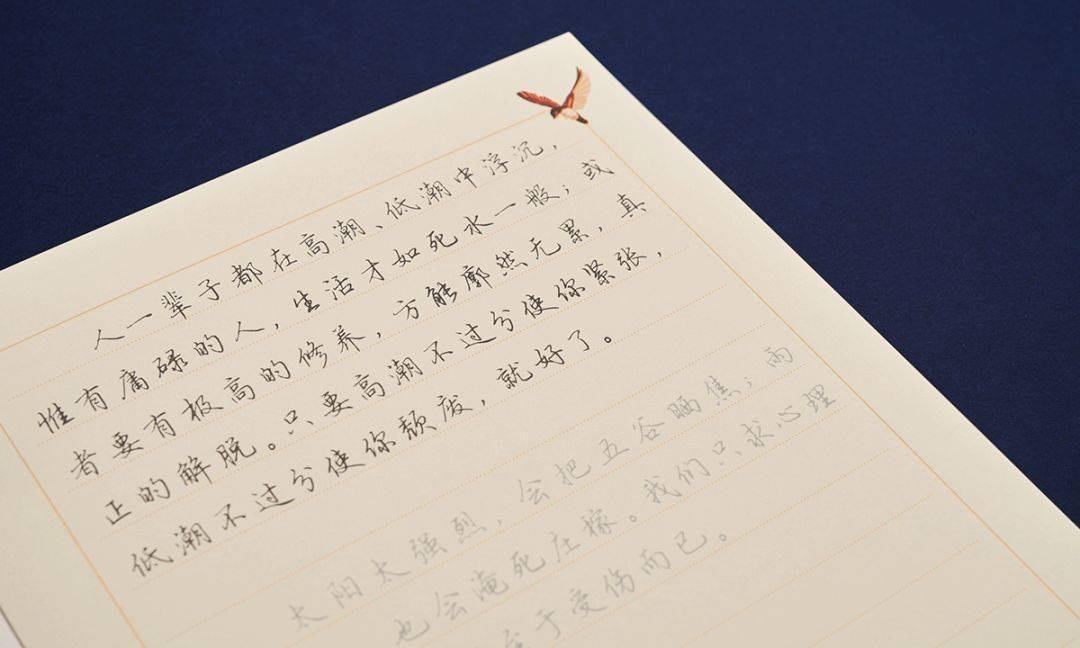 人一辈子都在高潮、低潮中浮沉，
惟有庸碌的人，生活才如死水一般；或
者要有极高的修养，方能廓然无累，真
正的解脱。只要高潮不过分使你紧张，
低潮不过分使你颓废，就好了。
太阳太强烈，会把五谷晒焦；雨
也会淹死庄稼。我们只求心理
至于受伤而已。